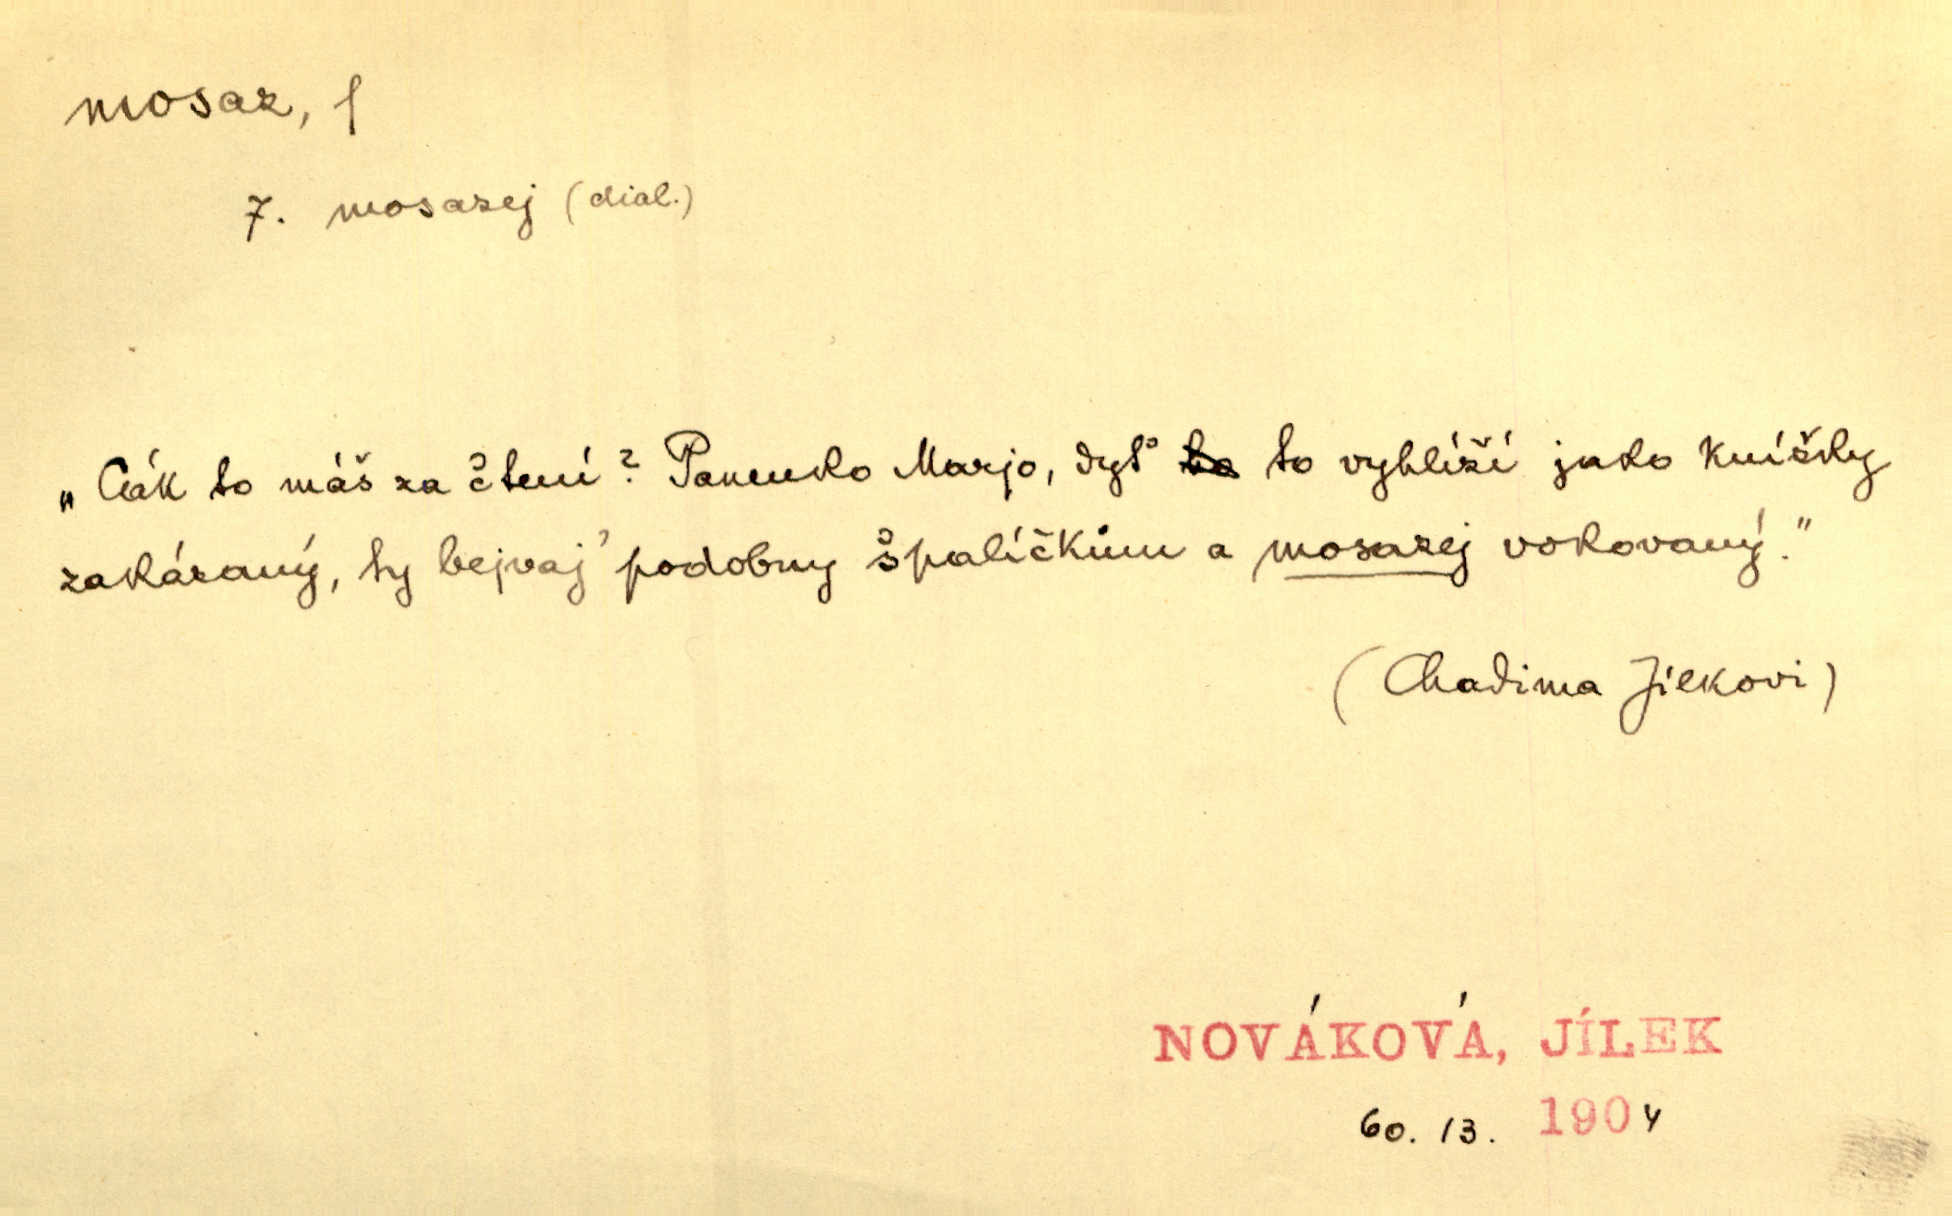 mosaz, f
7. mosazej (dial.)
„Cák to máš za čtení? Panenko Marjo, dyť to vyhlíží jako knížky
zakázaný, ty bejvaj' podobny špalíčkům a mosazej vokovaný."
(Chadima Jílkovi)
NOVÁKOVÁ, JÍLEK
60. 13. 1904